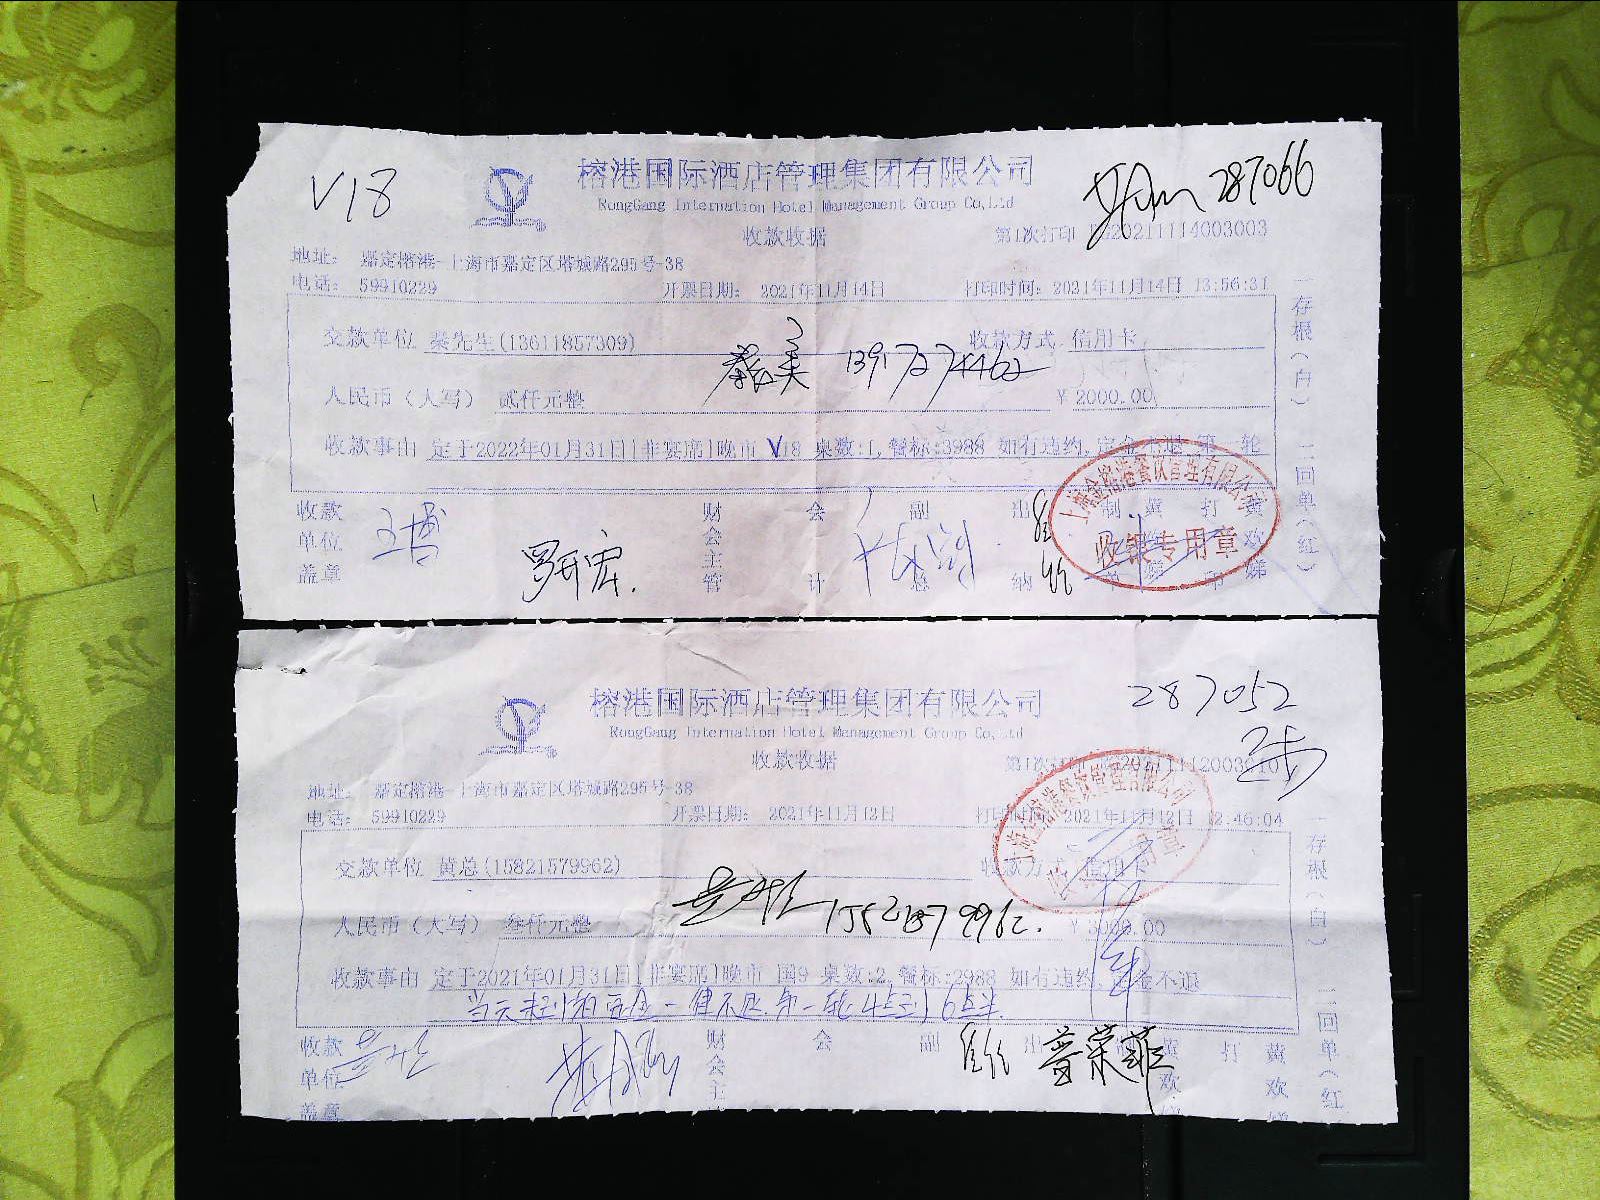 V18
榕港国际酒店管理集团有限公司
RongGang Internation Hotel Management Group Co,Ltd
287066
收款收据
第1次打印 20211114003003
地址: 嘉定榕港-上海市嘉定区塔城路295号-38
电话: 59910229 开票日期: 2021年11月14日 打印时间: 2021年11月14日 13:56:31
交款单位 秦先生(13611857309) 收款方式 信用卡
13917274462
人民币(大写) 贰仟元整 ¥2000.00
收款事由 定于2022年01月31日|非宴席|晚市 V18 桌数:1,餐标:3988 如有违约,定金不退 第一轮
一存根(白) 二回单(红)
收款单位盖章 王博 罗开宏. 财会主管 会计 副总 出纳 制单 打印 黄欢娣
上海金榕港餐饮管理有限公司
收银专用章
榕港国际酒店管理集团有限公司
RongGang Internation Hotel Management Group Co,Ltd
287052
收款收据
第1次打印
地址: 嘉定榕港-上海市嘉定区塔城路295号-38
电话: 59910229 开票日期: 2021年11月12日 打印时间: 2021年11月12日 12:46:04
交款单位 黄总(15821579962) 收款方式 信用卡
15821579962.
人民币(大写) 叁仟元整 ¥3000.00
收款事由 定于2021年01月31日|非宴席|晚市 国9 桌数:2,餐标:2988 如有违约,定金不退
第一轮4点到6点半.
一存根(白) 二回单(红
收款单位盖章 财会主 会 副 出 制 黄欢 打 黄欢